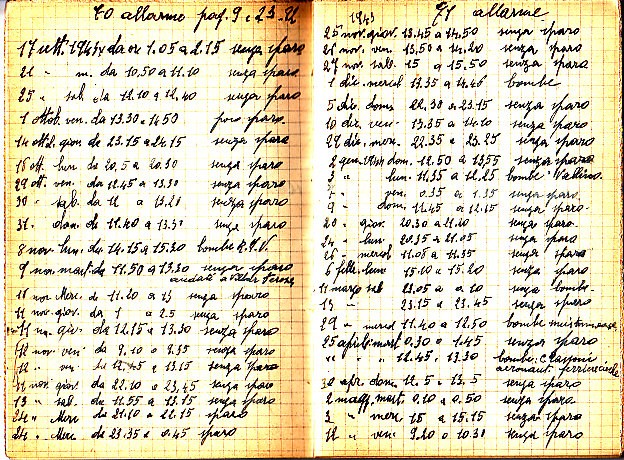 70 allarme pag. 9 - 23 - 21
17 sett. 1943 da ore 1.05 a 2.15 senza sparo
21 " m. da 10.50 a 11.10 senza sparo
25 " sab. da 12.10 a 12.40 senza sparo
1 ottob. ven. da 13.30 a 14.50 poco sparo
14 ottob. giov. da 23.15 a 24.15 senza sparo
18 ott. lun. da 20,5 a 20.30 senza sparo
29 ott. ven. da 12.45 a 13.30 senza sparo
30 " sab. da 12 a 13.20 senza sparo
31 " dom. da 11.40 a 13.30 senza sparo
8 nov. lun. da 14.15 a 15.30 bombe
9 nov. mart. da 11.50 a 13.30 senza sparo
andati a Villar Perosa
10 nov. Merc. da 11.20 a 13 senza sparo
11 nov. giov. da 1 a 2.5 senza sparo
11 nov. giov. da 12.15 a 13.30 senza sparo
12 nov. ven. da 9.10 a 9.35 senza sparo
12 " ven. da 12.45 a 13.15 senza sparo
nov. giov. da 22.10 a 23,45 senza sparo
13 " sab. da 11.55 a 13.15 senza sparo
24 " Merc. da 21.10 a 22.15 sparo
24 " Merc. da 23.35 a 0.45 sparo
1943 71 allarme
25 nov. giov. 13.45 a 14.50 senza sparo
26 nov. ven. 13.50 a 14.20 senza sparo
27 nov. sab. 15 a 15.50 senza sparo
1 dic. mercol. 13.35 a 14.46 bombe
5 dic. dom. 22.30 a 23.15 senza sparo
10 dic. ven. 13.35 a 14.10 senza sparo
29 dic. mer. 22.35 a 23.25 senza sparo
2 gen. 1944 dom. 12.50 a 13,55 senza sparo
3 " lun. 11.35 a 12.25 bombe
7 " ven. 0.35 a 1.35 senza sparo
9 " dom. 11.45 a 12.15 senza sparo
20 " giov. 20.30 a 21.20 senza sparo
24 " lun. 20.35 a 21.05 senza sparo
26 " mercol. 11.05 a 11.35 senza sparo
6 febb. dom. 15.10 a 15.20 senza sparo
11 marzo sab. 23.05 a 0.10 senza bombe
13 " 23.15 a 23.45 senza sparo
29 " merc. 11.40 a 12.50 bombe
25 aprile mart. 0.30 a 1.45 senza sparo
" " " 12.45 a 13.30 bombe
aeronaut. ferriere
30 apr. dom. 12.5 a 13.5 senza sparo
2 magg. mart. 0.10 a 0.50 senza sparo
3 " merc. 15 a 15.15 senza sparo
12 " ven. 9.20 a 10.30 senza sparo